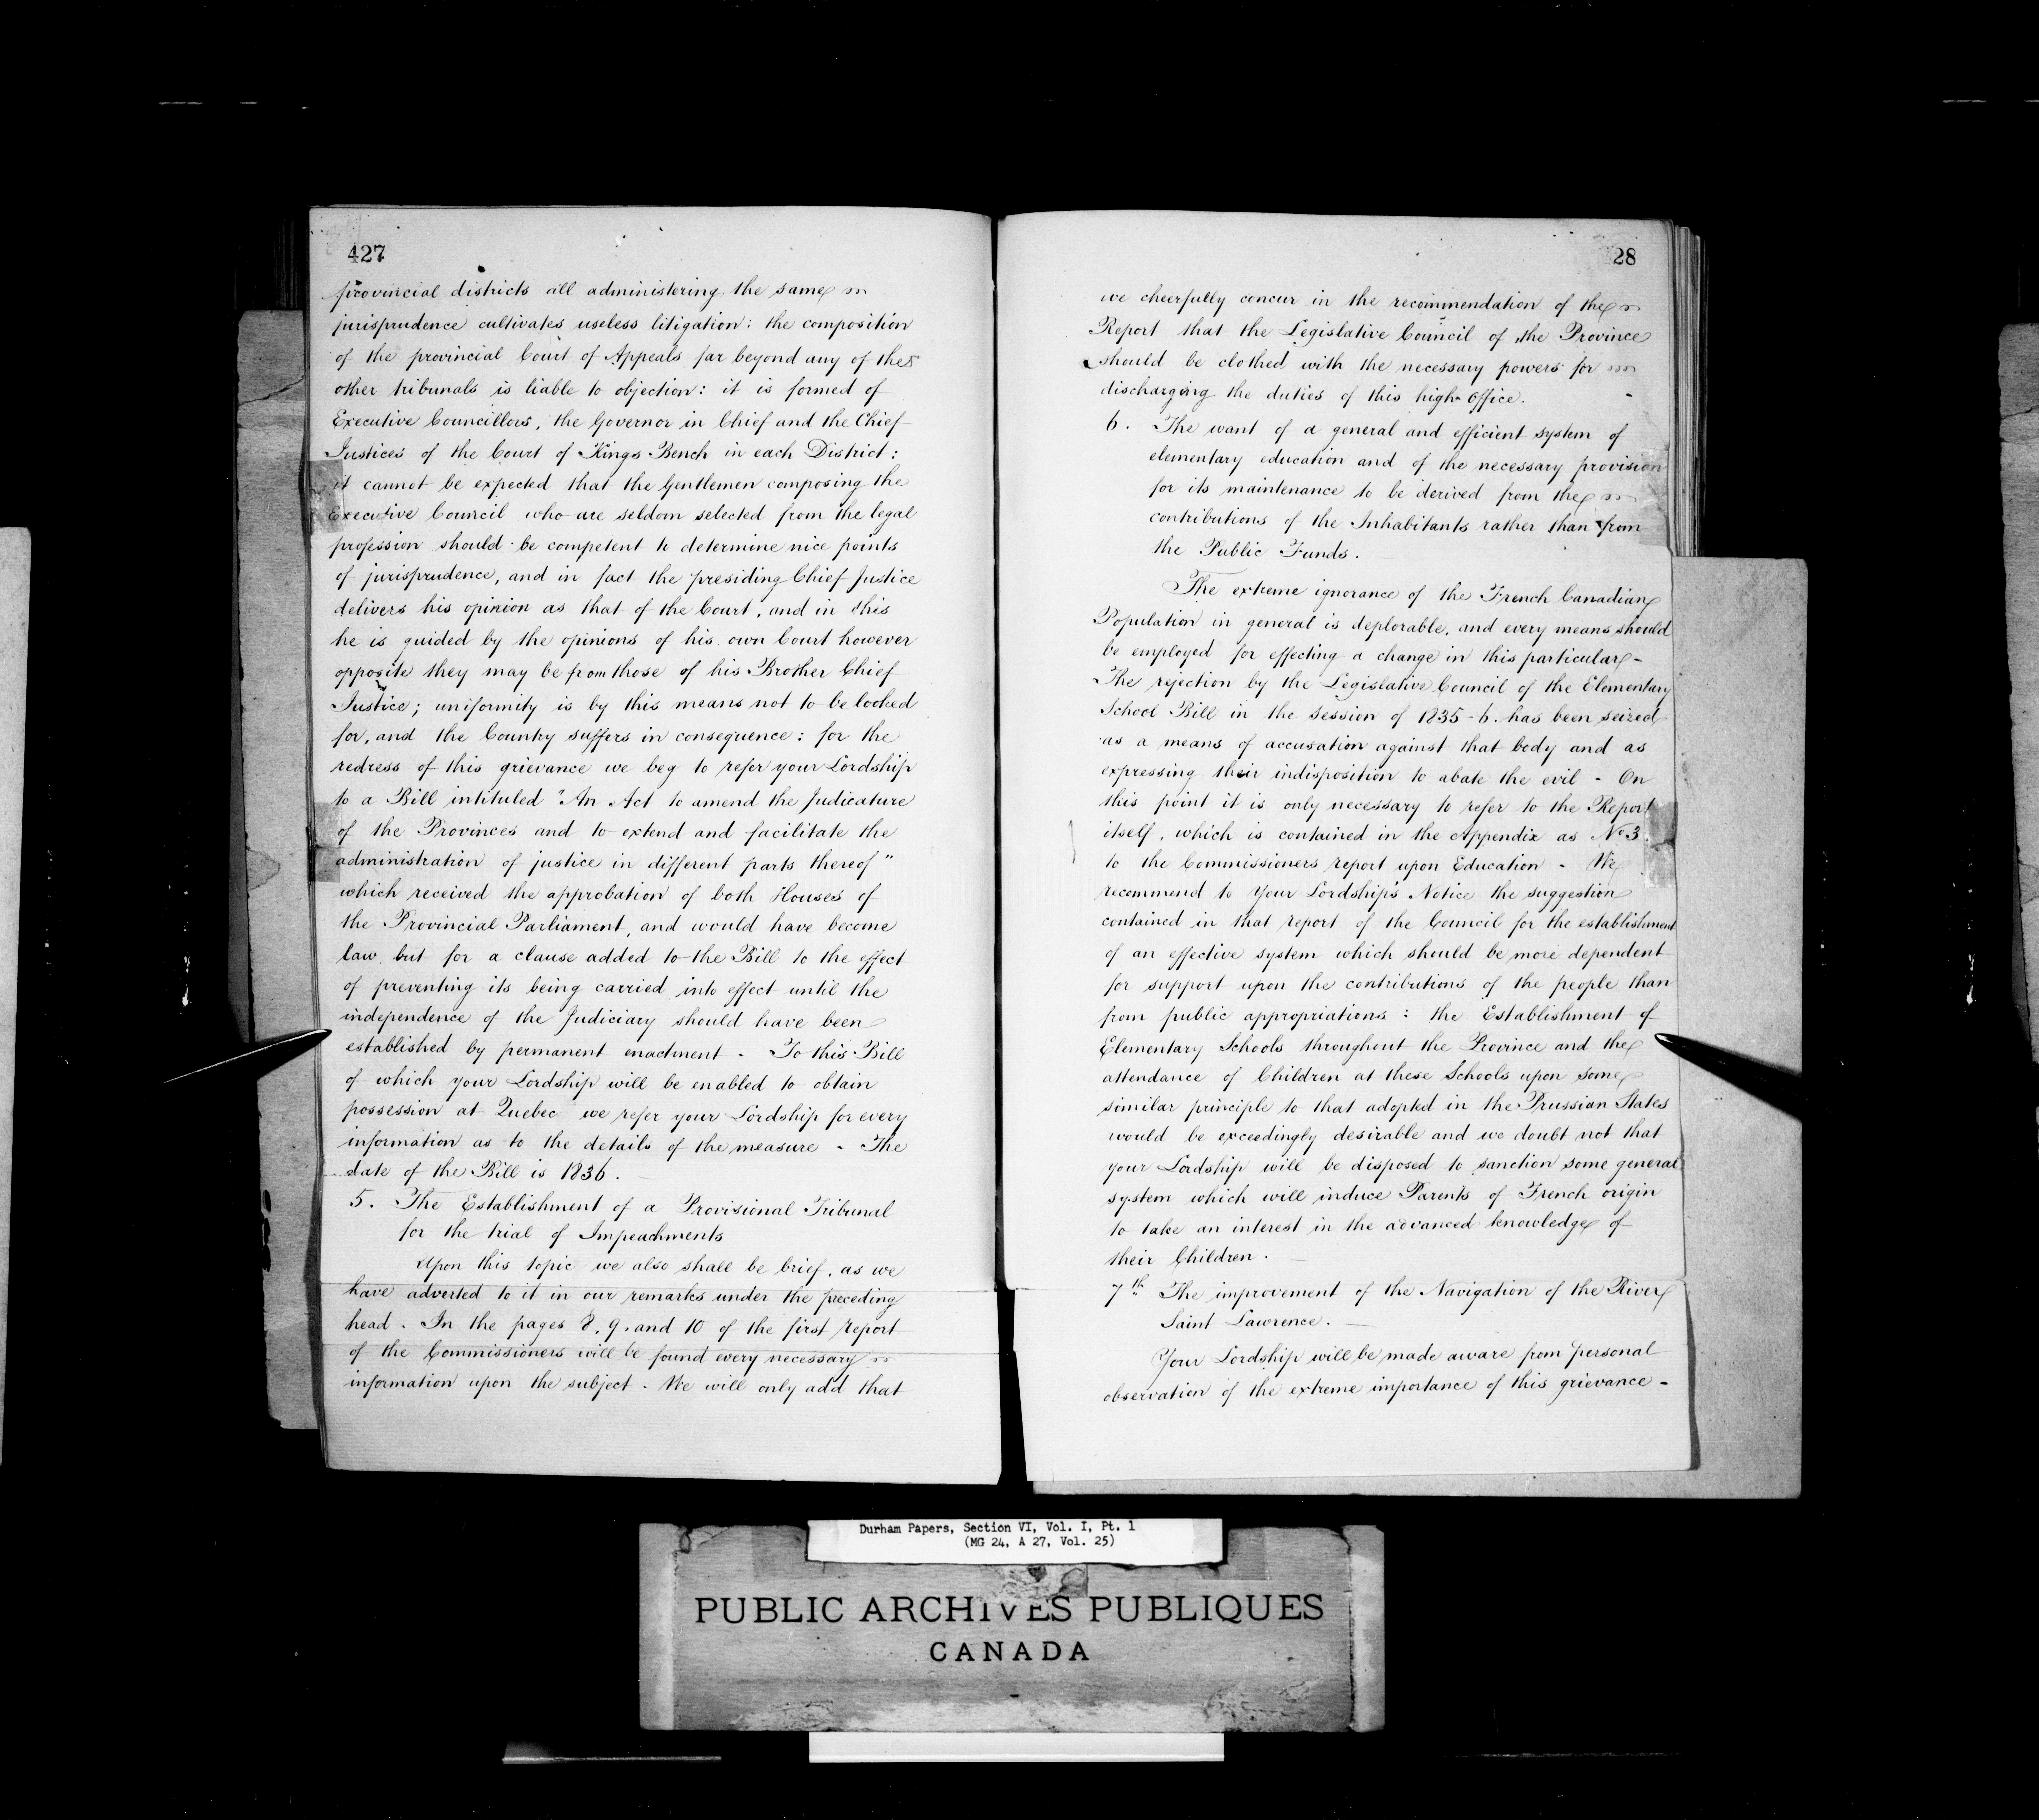 427
provincial districts all administering the same
jurisprudence cultivates useless litigation: the composition
of the provincial Court of Appeals far beyond any of the
other tribunals is liable to objection: it is formed of
Executive Councillors, the Governor in Chief and the Chief
Justices of the Court of Kings Bench in each District:
it cannot be expected that the Gentlemen composing the
Executive Council who are seldom selected from the legal
profession should be competent to determine nice points
of jurisprudence, and in fact the presiding Chief Justice
delivers his opinion as that of the Court, and in this
he is guided by the opinions of his own Court however
opposite they may be from those of his Brother Chief
Justice; uniformity is by this means not to be looked
for, and the Country suffers in consequence: for the
redress of this grievance we beg to refer your Lordship
to a Bill intituled "An Act to amend the Judicature
of the Provinces and to extend and facilitate the
administration of justice in different parts thereof"
which received the approbation of both Houses of
the Provincial Parliament, and would have become
law, but for a clause added to the Bill to the effect
of preventing its being carried into effect until the
independence of the Judiciary should have been
established by permanent enactment - To this Bill
of which your Lordship will be enabled to obtain
possession at Quebec we refer your Lordship for every
information as to the details of the measure - The
date of the Bill is 1836.
5. The Establishment of a Provisional Tribunal
for the trial of Impeachments
Upon this topic we also shall be brief, as we
have adverted to it in our remarks under the preceding
head. In the pages 8, 9, and 10 of the first report
of the Commissioners will be found every necessary
information upon the subject. We will only add that
28
we cheerfully concur in the recommendation of the
Report that the Legislative Council of the Province
should be clothed with the necessary powers for
discharging the duties of this high Office.
6. The want of a general and efficient system of
elementary education and of the necessary provision
for its maintenance to be derived from the
contributions of the Inhabitants rather than from
the Public Funds.
The extreme ignorance of the French Canadian
Population in general is deplorable, and every means should
be employed for effecting a change in this particular -
The rejection by the Legislative Council of the Elementary
School Bill in the Session of 1835-6. has been seized
as a means of accusation against that body and as
expressing their indisposition to abate the evil - On
this point it is only necessary to refer to the Report
itself, which is contained in the Appendix as No 3
to the Commissioners report upon Education - We
recommend to Your Lordship's Notice the suggestion
contained in that report of the Council for the establishment
of an effective system which should be more dependent
for support upon the contributions of the people than
from public appropriations: the Establishment of
Elementary Schools throughout the Province and the
attendance of Children at these Schools upon some
similar principle to that adopted in the Prussian States
would be exceedingly desirable and we doubt not that
your Lordship will be disposed to sanction some general
system which will induce Parents of French origin
to take an interest in the advanced knowledge of
their Children.
7th The improvement of the Navigation of the River
Saint Lawrence.
Your Lordship will be made aware from personal
observation of the extreme importance of this grievance -
Durham Papers, Section VI, Vol. I, Pt. 1
(MG 24, A 27, Vol. 25)
PUBLIC ARCHIVES PUBLIQUES
CANADA